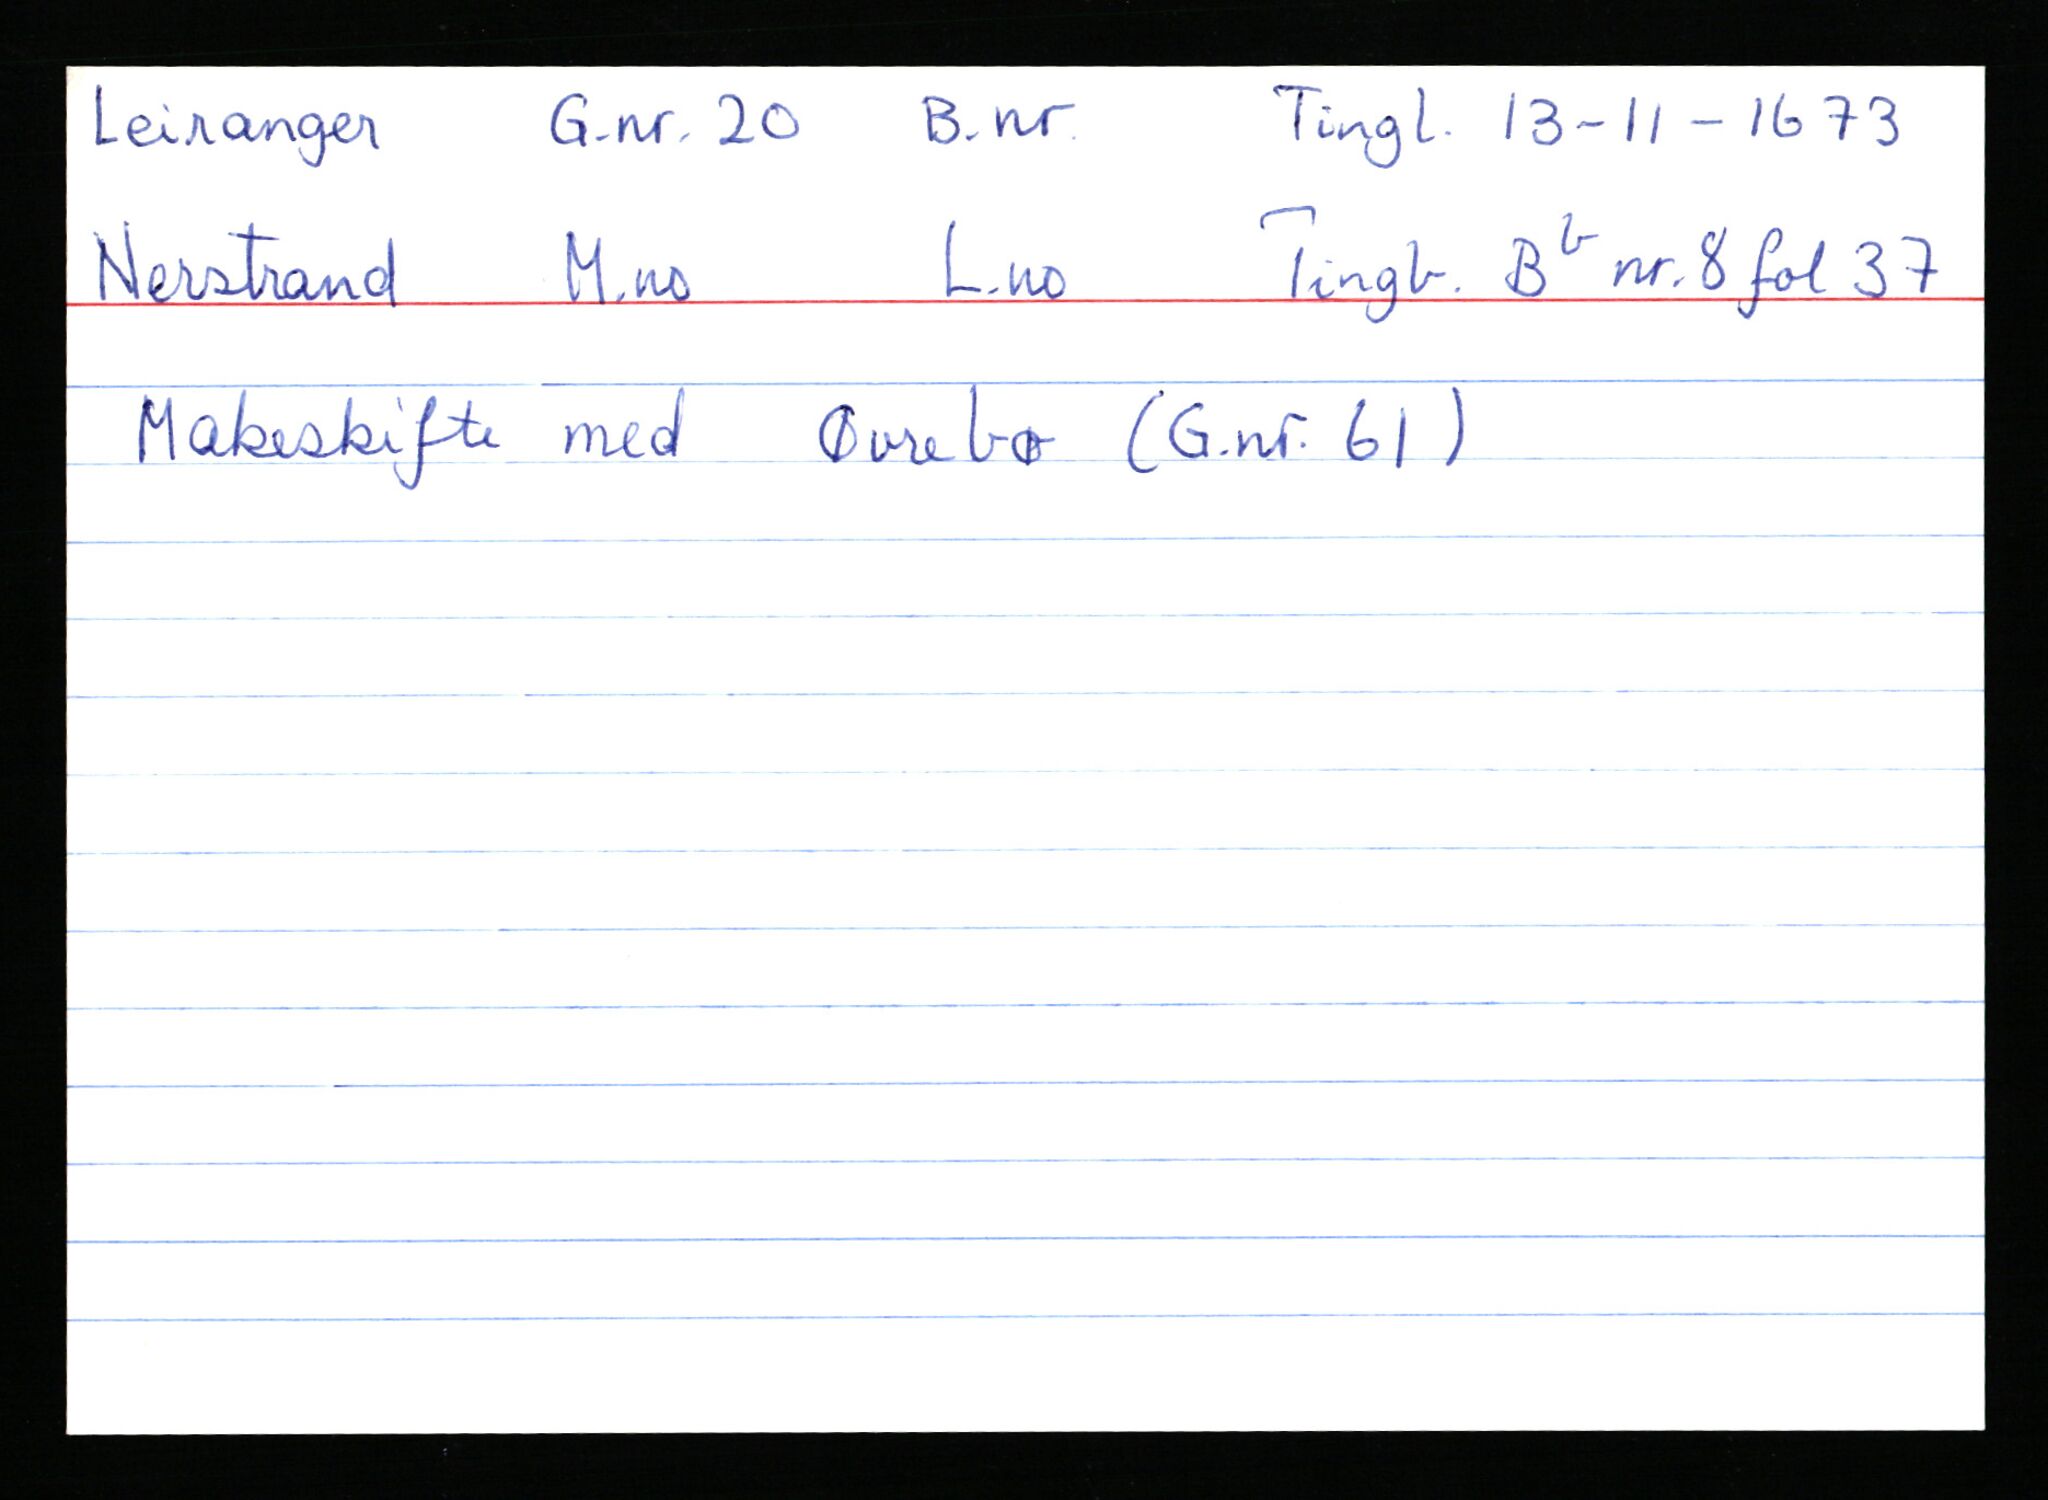 Leiranger G.nr. 20 B.nr. Tingl. 13-11-1673
Nerstrand M.no L.no Tingb. Bb nr. 8 fol 37
Makeskifte med Øvrebø (G.nr. 61)